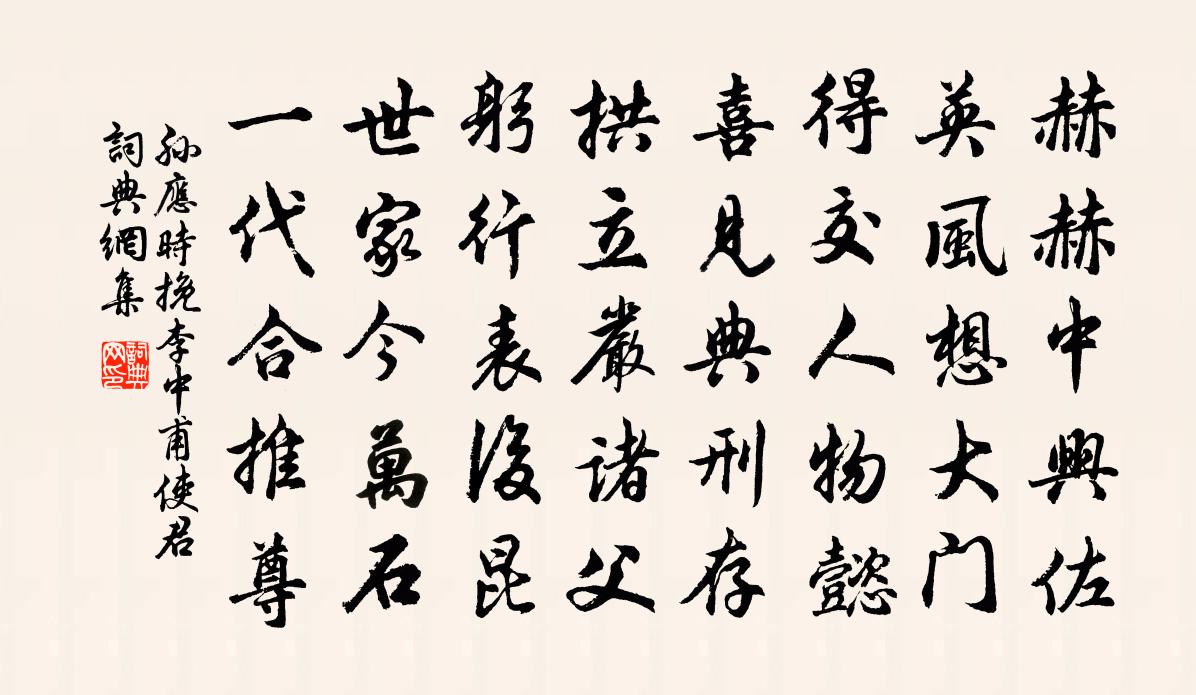 赫赫中興佐
英風想大门
得交人物懿
喜見典刑存
拱立嚴諸父
躬行表後昆
世家今萬石
一代合推尊
孙應時挽李中甫使君
詞典網集
詞典网印